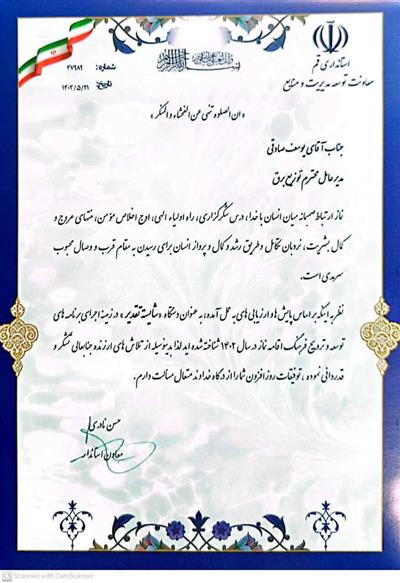 استانداری قم
معاونت توسعه مدیریت و منابع
شماره: ۲۷۹۸۲
تاریخ: ۱۴۰۲/۵/۲۱
«ان الصلوه تنهی عن الفحشاء و المنکر»
جناب آقای یوسف صادقی
مدیرعامل محترم توزیع برق
نماز ارتباط صمیمانه میان انسان با خدا، درس شکرگزاری، راه اولیاء الهی، اوج اخلاص مؤمن، منتهای عروج و
کمال بشریت، نردبان تکامل و طریق رشد و کمال و پرواز انسان برای رسیدن به مقام قرب و وصال محبوب
سرمدی است.
نظر به اینکه بر اساس پایش ها و ارزیابی های به عمل آمده، به عنوان دستگاه «شایسته تقدیر» در زمینه اجرای برنامه های
توسعه و ترویج فرهنگ اقامه نماز در سال ۱۴۰۲ شناخته شده اید لذا بدینوسیله از تلاش های ارزنده جنابعالی تشکر و
قدردانی نموده، توفیقات روز افزون شما را از درگاه خداوند متعال مسألت دارم.
حسن نادری
معاون استاندار
CS Scanned with CamScanner